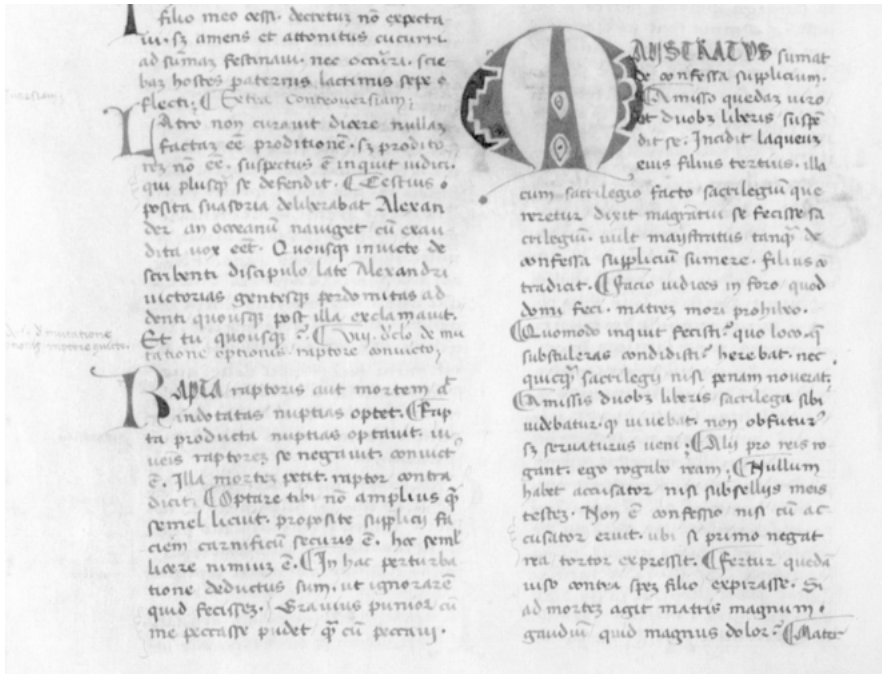 filio meo cessi. decretuz nō expecta
ui. sz amens et attonitus cucurri
ad sūmaz festinaui. nec occūri. scie
baz hostes paternis lacrimis sepe
flecti. ¶ Extra controuersiam;
LAtro non curauit dicere nullaz
factaz eē proditionē. sz prodito
rez nō eē. suspectus ē inquit iudici.
qui plusq̄ se defendit. ¶ Cestius
posita suasoria deliberabat Alexan
der an oceanū nauiget cū exau
dita vox eēt. Quousq inuicte de
scribenti discipulo late Alexandri
victorias gentesq perdomitas ad
denti quousq post illa exclamauit.
Et tu quousq ¶ viij. dclo de mu
tatione optionis raptore conuicto
RAPTA raptoris aut mortem
indotatas nuptias optet. ¶ Rap
ta producta nuptias optauit.
raptorez se negauit. conuict
ē. Illa mortez petit. raptor contra
dicit. ¶ Optare tibi nō amplius q̄
semel licuit. proposite supplicij fa
ciem carnificū securis ē. hoc seml
licere nimiuz ē. ¶ In hac perturba
tione deductus sum. ut ignorarē
quid fecissez. Grauius punior cū
me peccasse pudet q̄ cū peccaui.
MAGISTRATVS sumat
de confessa supplicium.
¶ Amisso quedaz uiro
et duobz liberis suspē
dit se. Incidit laqueuz
eius filius tertius. illa
cum sacrilegio facto sacrilegiū que
reretur dixit magratui se fecisse sa
crilegiū. uult magistratus tanq̄ de
confessa suppliciū sumere. filius
tradicit. ¶ Facio iudices in foro quod
domi feci. matrez mori prohibeo.
¶ Quomodo inquit fecisti. quo loco. q̄
substuleras condidisti. herebat. nec
quicq̄ sacrilegij nisi penam nouerat.
¶ Amissis duobz liberis sacrilega sibi
uidebatur. q uiuebat. non obfutur
sz seruaturus ueni. ¶ Alij pro reis ro
gant. ego rogabo ream. ¶ Nullum
habet accusator nisi subsellijs meis
testez. Non ē confessio nisi cū ac
cusator eruit. ubi si primo negat
rea tortor expressit. ¶ Fertur quedā
uiso contra spez filio expirasse. Si
ad mortez agit matris magnum
gaudiū quid magnus dolor. ¶ Mater